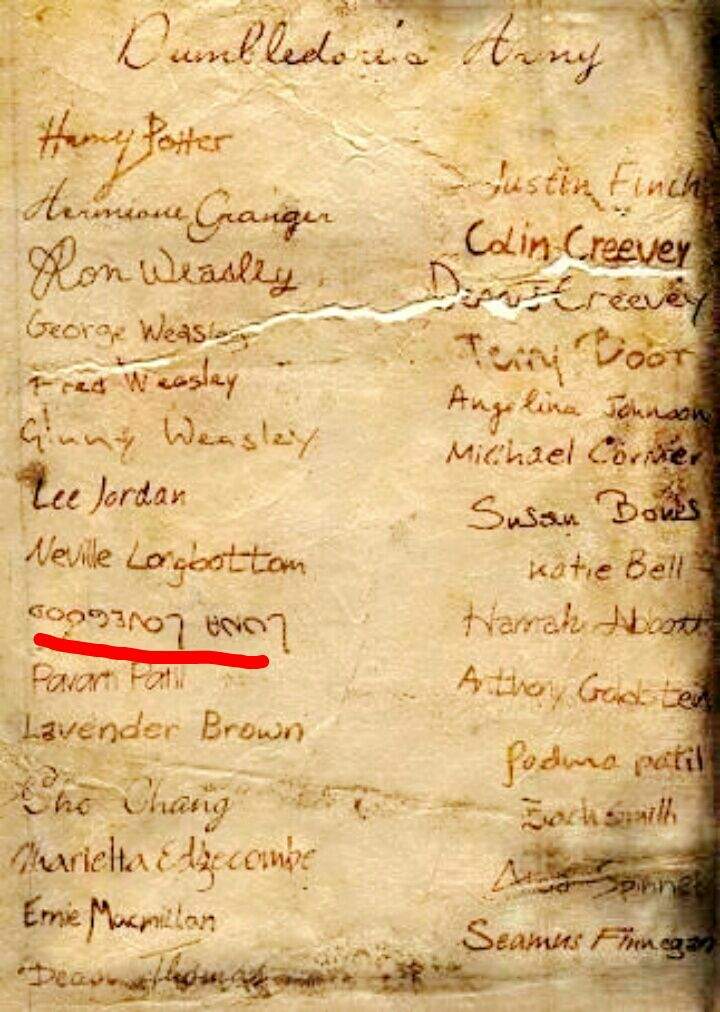 Dumbledore's Army
Harry Potter
Hermione Granger
Ron Weasley
George Weasley
Fred Weasley
Ginny Weasley
Lee Jordan
Neville Longbottom
LUNA LOVEGOOD
Parvati Patil
Lavender Brown
Cho Chang
Marietta Edgecombe
Ernie Macmillan
Dean Thomas
Justin Finch
Colin Creevey
Dennis Creevey
Terry Boot
Angelina Johnson
Michael Corner
Susan Bones
Katie Bell
Hannah Abbott
Anthony Goldstein
Padma patil
Zach smith
Spinnet
Seamus Finnegan